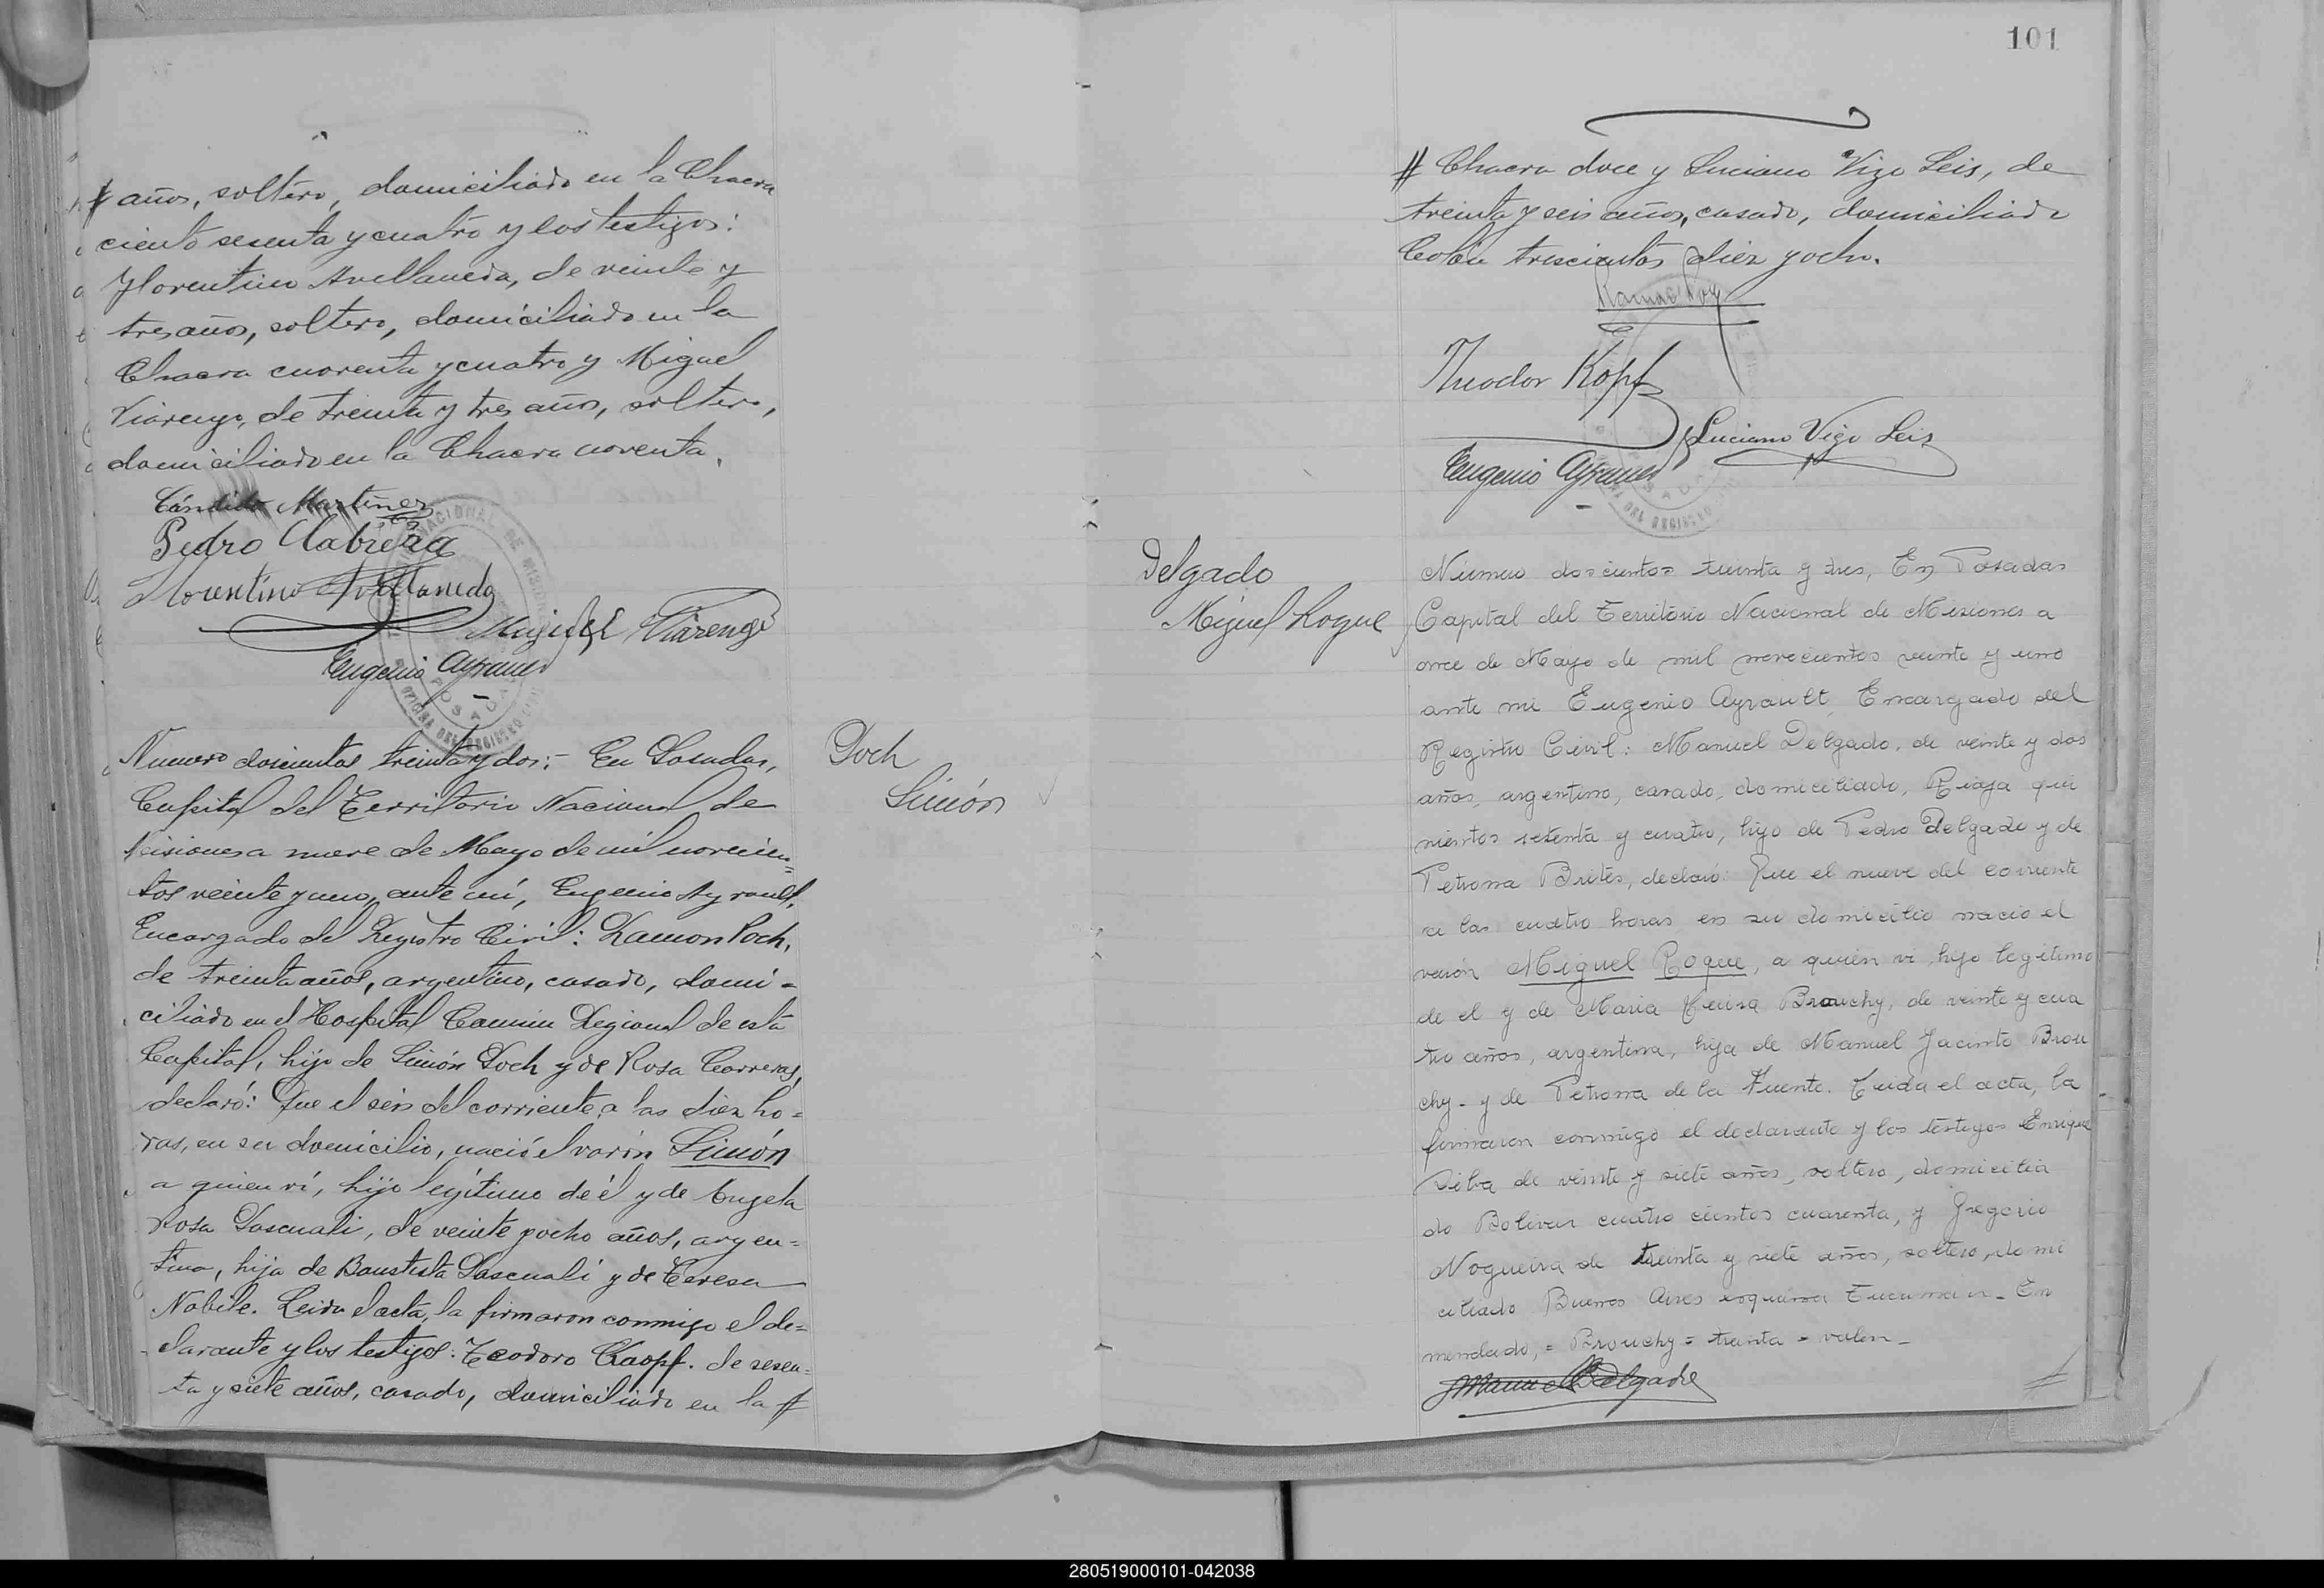 # años, soltero, domiciliado en la Chacra
ciento sesenta y cuatro y los testigos:
Florentino Avellaneda, de veinte y
tres años, soltero, domiciliado en la
Chacra cuarenta y cuatro y Miguel
Viarengo, de treinta y tres años, soltero,
domiciliado en la Chacra noventa.
Cándido Martínez
Pedro Cabrera
Florentino Avellaneda
Miguel Viarengo
Eugenio Ayrault
Numero doscientos treinta y dos:- En Posadas,
Capital del Territorio Nacional de
Misiones a nueve de Mayo de mil novecien=
tos veinte y uno, ante mí, Eugenio Ayrault,
Encargado del Registro Civil: Ramon Poch,
de treinta años, argentino, casado, domi-
ciliado en el Hospital Comun Regional de esta
Capital, hijo de Simón Poch y de Rosa Carreras,
declaró: Que el seis del corriente, a las diez ho-
ras, en su domicilio, nació el varón Simón
a quien ví, hijo legítimo de él y de Angela
Rosa Pascuali, de veinte y ocho años, argen=
tina, hija de Baustista Pascuali y de Teresa
Nobile. Leida el acta, la firmaron conmigo el de=
clarante y los testigos: Teodoro Kaopf. de sesen=
ta y siete años, casado, domiciliado en la #
Poch
Simón
101
# Chacra doce y Luciano Vigo Leis, de
treinta y seis años, casado, domiciliado
Colón trescientos diez y ocho.
Ramon Poch
Theodor Kopf
Luciano Vigo Leis
Eugenio Ayrault
Delgado
Miguel Roque
Número doscientos treinta y tres, En Posadas
Capital del Territorio Nacional de Misiones a
once de Mayo de mil novecientos veinte y uno
ante mi Eugenio Ayrault, Encargado del
Registro Civil: Manuel Delgado, de veinte y dos
años, argentino, casado, domiciliado, Rioja qui
nientos setenta y cuatro, hijo de Pedro Delgado y de
Petrona Brites, declaró: Que el nueve del corriente
a las cuatro horas en su domicilio nacio el
varón Miguel Roque, a quién vi, hijo legitimo
de el y de Maria Luisa Brouchy, de veinte y cua
tro años, argentina, hija de Manuel Jacinto Brou
chy - y de Petrona de la Fuente. Leida el acta, la
firmaron conmigo el declarante y los testigos Enrique
Silva de veinte y siete años, soltero, domicilia
do Bolivar cuatro cientos cuarenta, y Gregorio
Nogueira de treinta y siete años, soltero, do mi
ciliado Buenos Aires esquina Tucumán - En
mendado, = Brouchy = treinta = valen -
Manuel Delgado
#
280519000101-042038